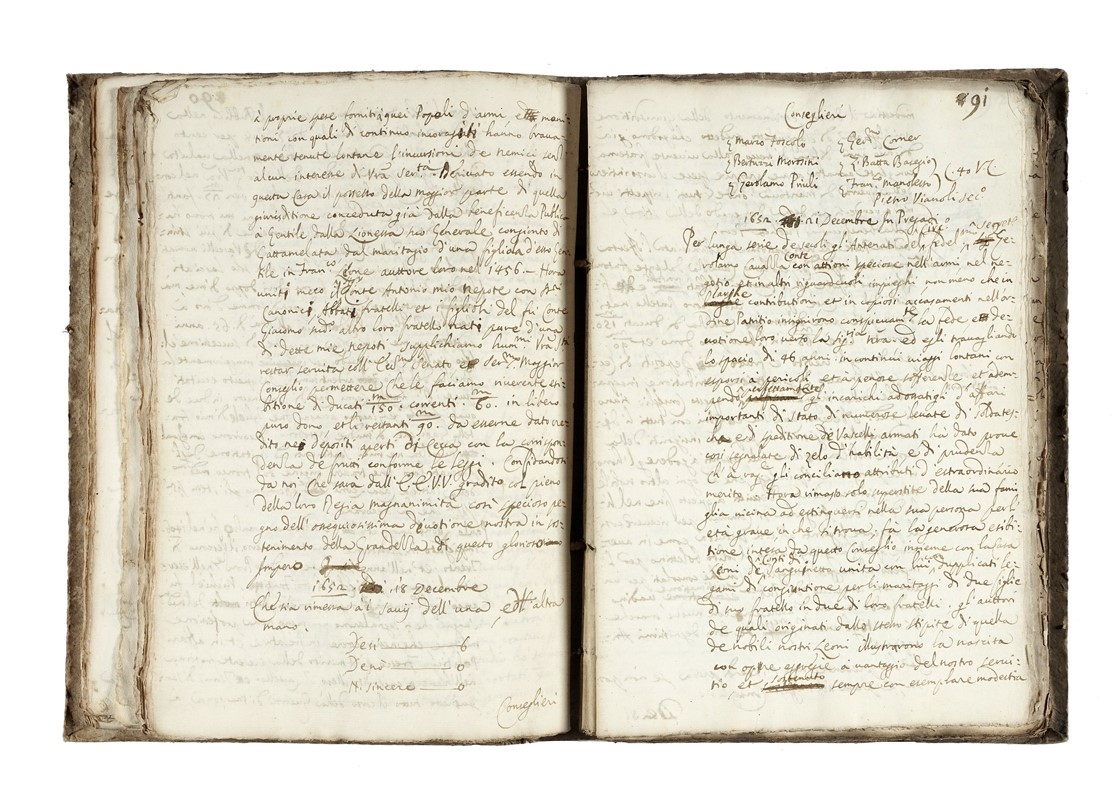 à proprie spese forniti quei Popoli d'armi e muni-
tioni con quali di continuo incoragiti hanno brava-
mente tenute lontane l'incursioni de nemici senza
alcun interesse di Vra Sertà. Derivato essendo in
questa Casa il possesso della Maggior parte di quella
giurisditione conceduta già dalla beneficenza Publica
à Gentile dalla Lionessa suo Generale congionto di
Gattamelata dal maritagio d'una figliola d'esso Gen-
tile in Franco. Leone auttore loro nell 1456. Hora
uniti meco il Conte Antonio mio nepote con
Canonici Abbati fratelli et i figlioli del fù Conte
Giacomo altro loro fratello nati pure d'una
di dette mie nepoti supplichiamo
restar servita coll' Senato e Maggior
Conseglio permettere che le faciamo riverente esi-
bitione di ducati m/150. correnti m/60. in libero
puro dono et li restanti m/90. da esserne dato cre-
dito nei Depositi aperti di Cecca con la corrispon-
denza de frutti conforme le leggi. Confidandosi
da noi che sarà dall' EE.VV. gradito con pieno
della loro Regia magnanimità così specioso pe-
gno dell' ossequiosissima devotione nostra in sos-
tenimento della Grandezza di questo glorioso
Impero
1652. 18 Decembre
Che sia rimessa ai Savij dell' una, e dell' altra
mano.
De sì 6
De nò 0
N. sincere 0
Conseglieri
91
Conseglieri
Marco Foscolo Corner
Bertucci Morosini Batta
Gerolamo Priuli Franc. Manolesso 40
Pietro Vianoli Seco
1652 21 Decembre In Pregadi
Per lunga serie de secoli gli Antenati del fedel
rolamo Cavazza Conte con attioni speciose nell' armi nel ne-
gotio et in altri riguardevoli impieghi non meno che in
larghe contributioni et in copiosi accasamenti nell' or-
dine Patritio insignirono la fede e de-
votione loro verso la Sigria. nra. ed egli travagliando
lo spacio di 46 anni in continui viaggi lontani con
esporsi a pericoli et à penose sofferenze et adem-
piendo perfettamente gl' incarichi adossatigli d'affari
importanti di stato di numerose levate di soldates-
che e di speditione de Vascelli armati hà dato prove
così segnalate di zelo d'habilità e di prudenza
ch' à rag. gli conciliano attributi d' estraordinario
merito. Hora rimasto solo superstite della sua fami-
glia vicina ad estinguersi nella sua persona per l'
età grave in che si trova, fà la generosa esibi-
tione intesa da questo Conseglio insieme con la Casa
Leoni de Conti di Sanguinetto unita con lui in duplicati le-
gami di congiontione per li maritaggi di due figlie
di suo fratello in due di loro fratelli. gli auttori
de quali originati dallo stesso stipite di quella
de nobili nostri Leoni illustrarono la nascita
con opere egregie à vantaggio del nostro servi-
tio et sostenuto sempre con esemplare modestia